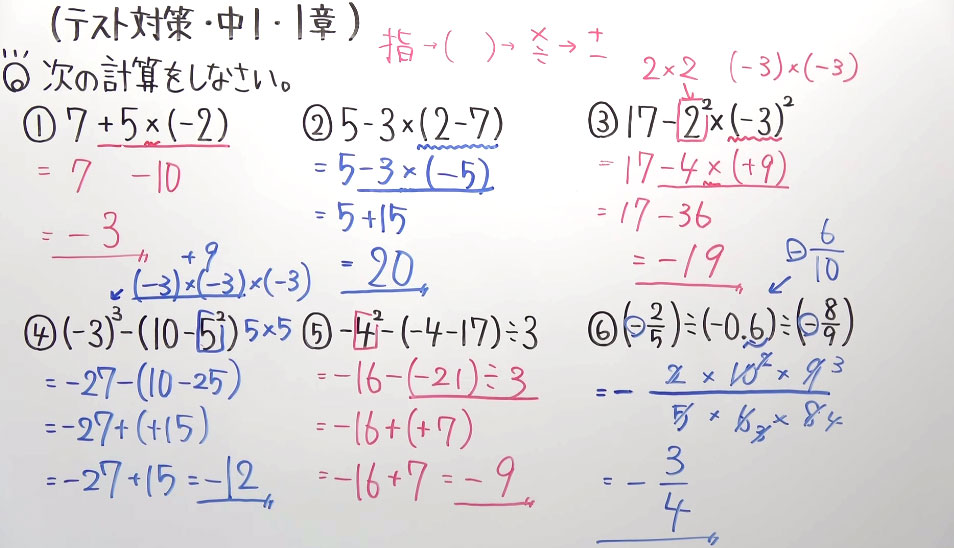 (テスト対策・中1・1章)
指→( )→×÷→+−
⑥ 次の計算をしなさい。
2×2 (−3)×(−3)
① 7+5×(−2)
= 7 −10
= −3
② 5−3×(2−7)
= 5−3×(−5)
= 5+15
= 20
③ 17−2²×(−3)²
= 17−4×(+9)
= 17−36
= −19
+9
(−3)×(−3)×(−3)
④ (−3)³−(10−5²) 5×5
= −27−(10−25)
= −27+(+15)
= −27+15 = −12
⑤ −4²−(−4−17)÷3
= −16−(−21)÷3
= −16+(+7)
= −16+7 = −9
⊖ 6/10
⑥ (−2/5)÷(−0.6)÷(−8/9)
= − 2×10²×9³ / 5×6₃×8₄
= − 3/4